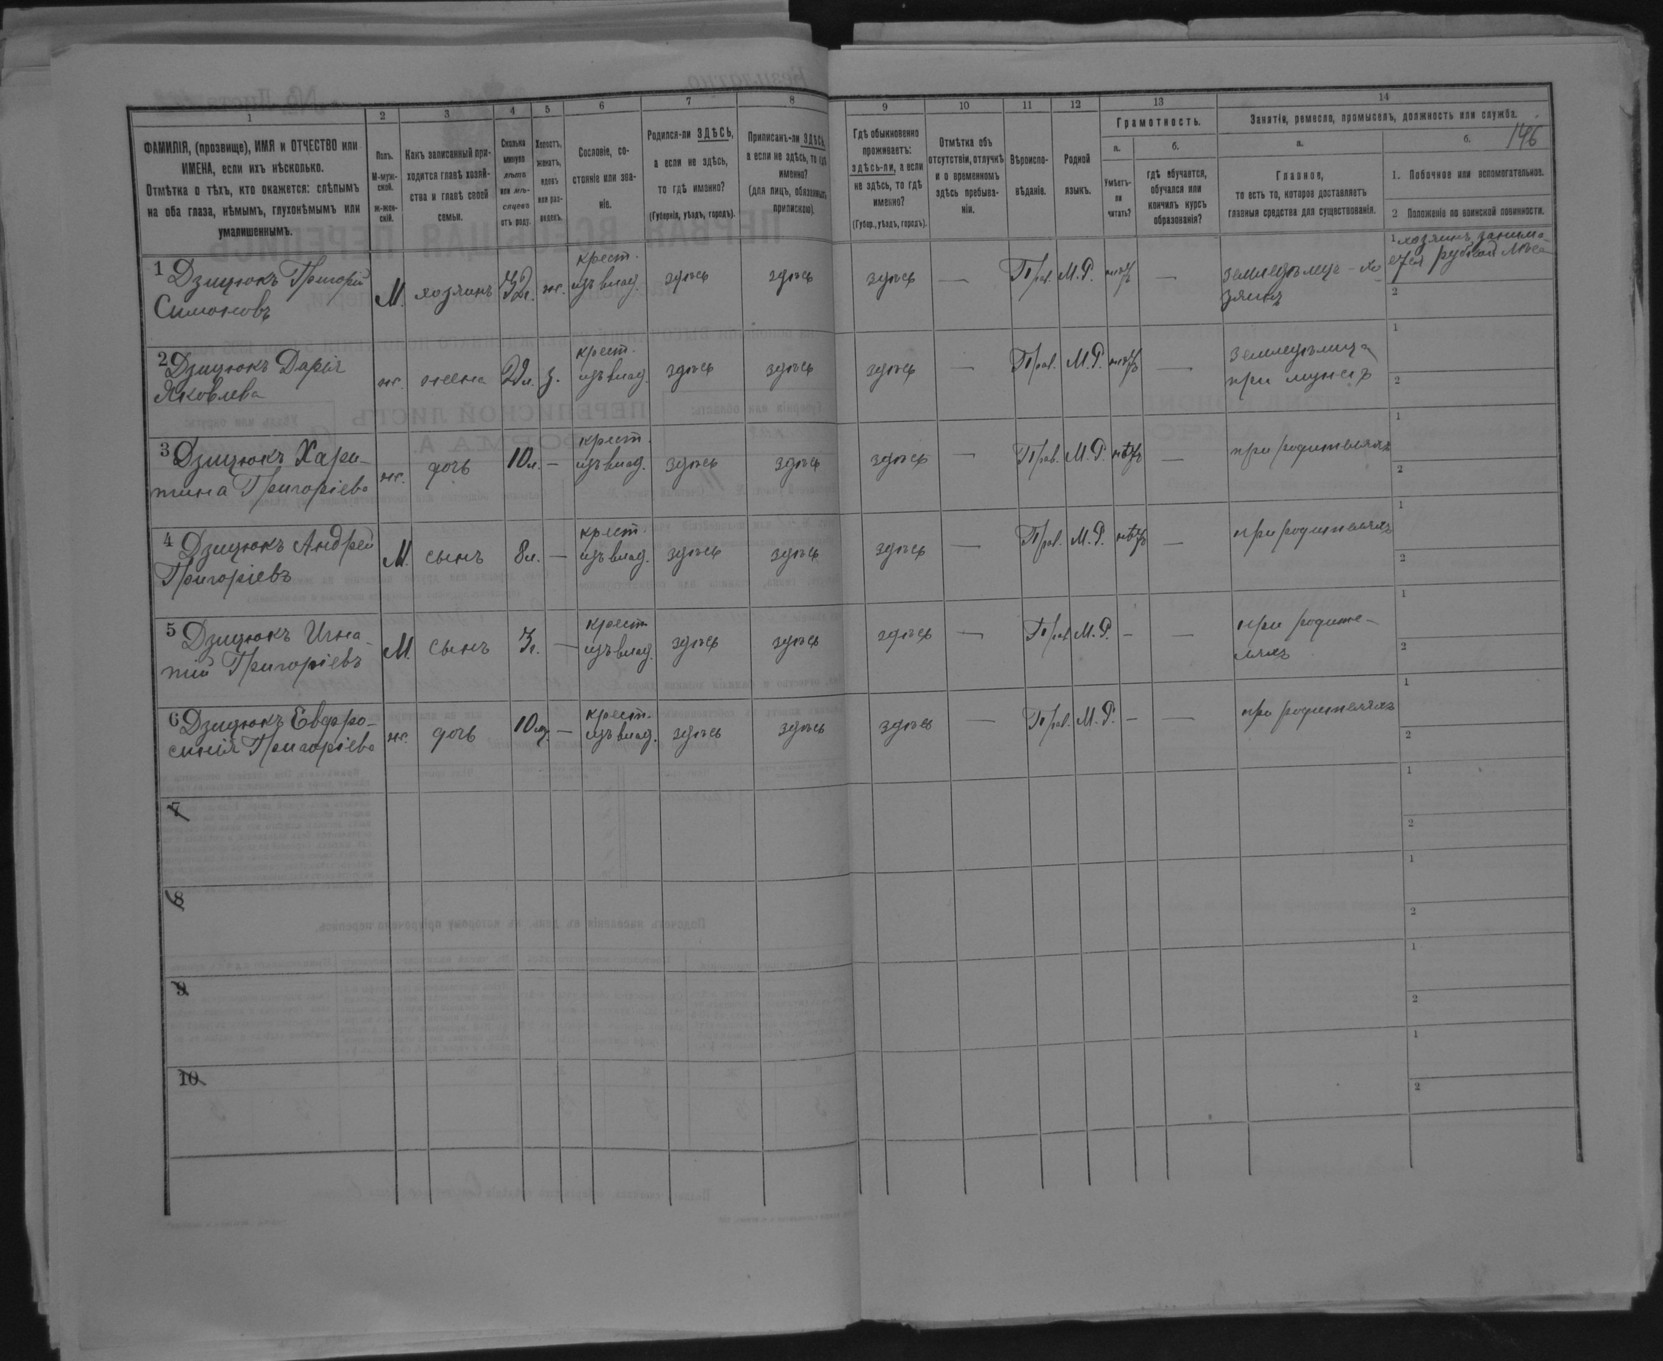 1 2 3 4 5 6 7 8 9 10 11 12 13 14
ФАМИЛІЯ, (прозвище), ИМЯ и ОТЧЕСТВО или
ИМЕНА, если ихъ нѣсколько.
Отмѣтка о тѣхъ, кто окажется: слѣпымъ
на оба глаза, нѣмымъ, глухонѣмымъ или
умалишеннымъ.
Полъ.
М-муж-
ской.
ж-жен-
скій.
Какъ записанный при-
ходится главѣ хозяй-
ства и главѣ своей
семьи.
Сколько
минуло
лѣтъ
или мѣ-
сяцевъ
отъ роду.
Холостъ,
женатъ,
вдовъ
или раз-
веденъ.
Сословіе, со-
стояніе или зва-
ніе.
Родился-ли ЗДѢСЬ,
а если не здѣсь,
то гдѣ именно?
(Губернія, уѣздъ, городъ).
Приписанъ-ли ЗДѢСЬ,
а если не здѣсь, то гдѣ
именно?
(для лицъ, обязанныхъ
припискою).
Гдѣ обыкновенно
проживаетъ:
здѣсь-ли, а если
не здѣсь, то гдѣ
именно?
(Губер., уѣздъ, городъ).
Отмѣтка объ
отсутствіи, отлучкѣ
и о временномъ
здѣсь пребыва-
ніи.
Вѣроиспо-
вѣданіе.
Родной
языкъ.
Грамотность.
а.
Умѣетъ-
ли
читать?
б.
гдѣ обучается,
обучался или
кончилъ курсъ
образованія?
Занятіе, ремесло, промыселъ, должность или служба.
146
а.
Главное,
то есть то, которое доставляетъ
главныя средства для существованія.
б.
1. Побочное или вспомогательное.
2 Положеніе по воинской повинности.
1 Дзицюкъ Григорій
Симоновъ
М. хозяинъ 32 л. ж. крест.
изъ влад. здѣсь здѣсь здѣсь — Прав. М.Р. нѣтъ —
земледѣлецъ - хо
зяинъ
1 хозяинъ
2
2 Дзицюкъ Дарія
Яковлева
ж. жена з. крест.
изъ влад. здѣсь здѣсь здѣсь — Прав. М.Р. нѣтъ —
при мужѣ
1
2
3 Дзицюкъ Хари-
тина Григоріева
ж. дочь 10 л. — крест.
изъ влад. здѣсь здѣсь здѣсь — Прав. М.Р. нѣтъ —
при родителяхъ
1
2
4 Дзицюкъ Андрей
Григоріевъ
М. сынъ 8 л. — крест.
изъ влад. здѣсь здѣсь здѣсь — Прав. М.Р. нѣтъ —
при родителяхъ
1
2
5 Дзицюкъ Игна-
тій Григоріевъ
М. сынъ 3 л. — крест.
изъ влад. здѣсь здѣсь здѣсь — Прав. М.Р. — —
при родите-
ляхъ
1
2
6 Дзицюкъ Евфро-
синія Григоріева
ж. дочь 10 м. — крест.
изъ влад. здѣсь здѣсь здѣсь — Прав. М.Р. — —
при родителяхъ
1
2
7
1
2
8
1
2
9
1
2
10
1
2